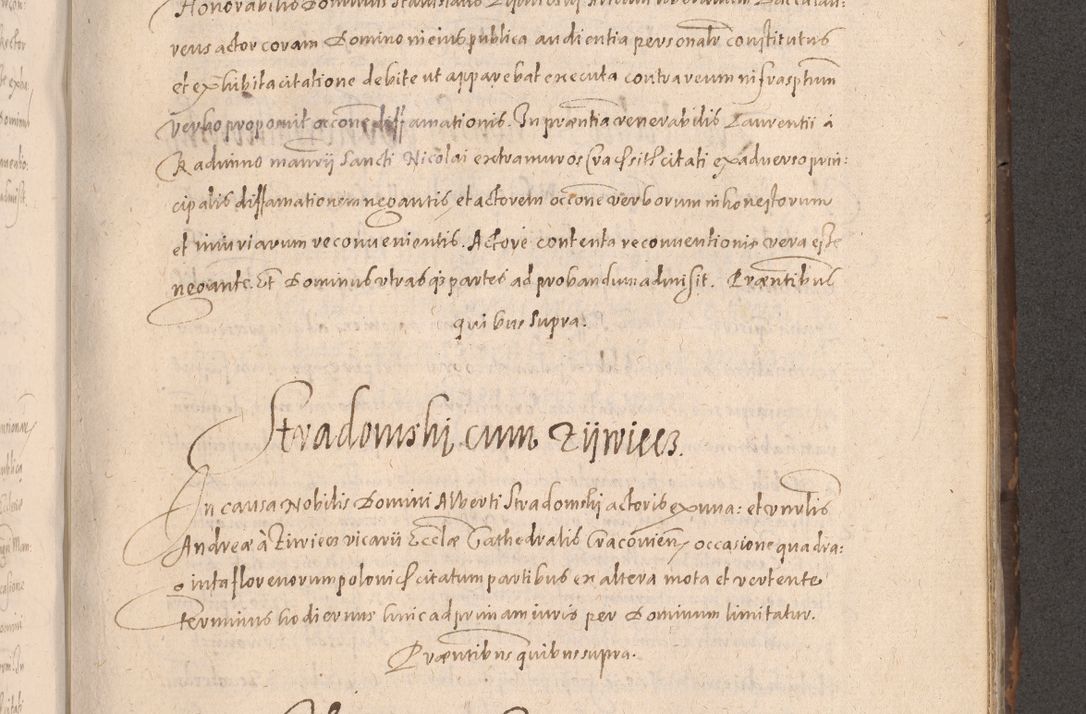 Honorabilis Dominus Stanislaus
reus actor coram Domino in eius publica audientia personalr constitutus
et exhibita citatione debite ut apparebat executa contra reum infrasptum
verbo proposuit occone diffamationis. In præntia venerabilis Laurentii à
Raduino Sancti Nicolai extra muros Crac sitl citati ex adverso prin:
cipalis diffamationem negantis, et actorem occone verborum inhonestorum
et iniuriarum reconvenientis. Actore contenta reconventionis vera esse
negante. Et Dominus utrasq3 partes ad probandum admisit. Præntibus
quibus supra.
Stradomskij cum Zijwiecz.
In causa Nobilis Domini Alberti Stradomskij actoris ex una: et vnrlis
Andreæ à Ziwiecz vicarii Eccle Cathedralis Cracovien, occasione quadra:
ginta florenorum polonic citatum partibus ex altera mota et vertente
terminus hodiernus hinc ad primam iuris per Dominum limitatur.
Præntibus quibus supra.